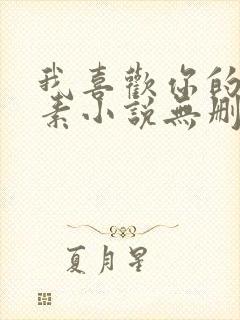 我喜歡你的
素小說無刪
夏月星